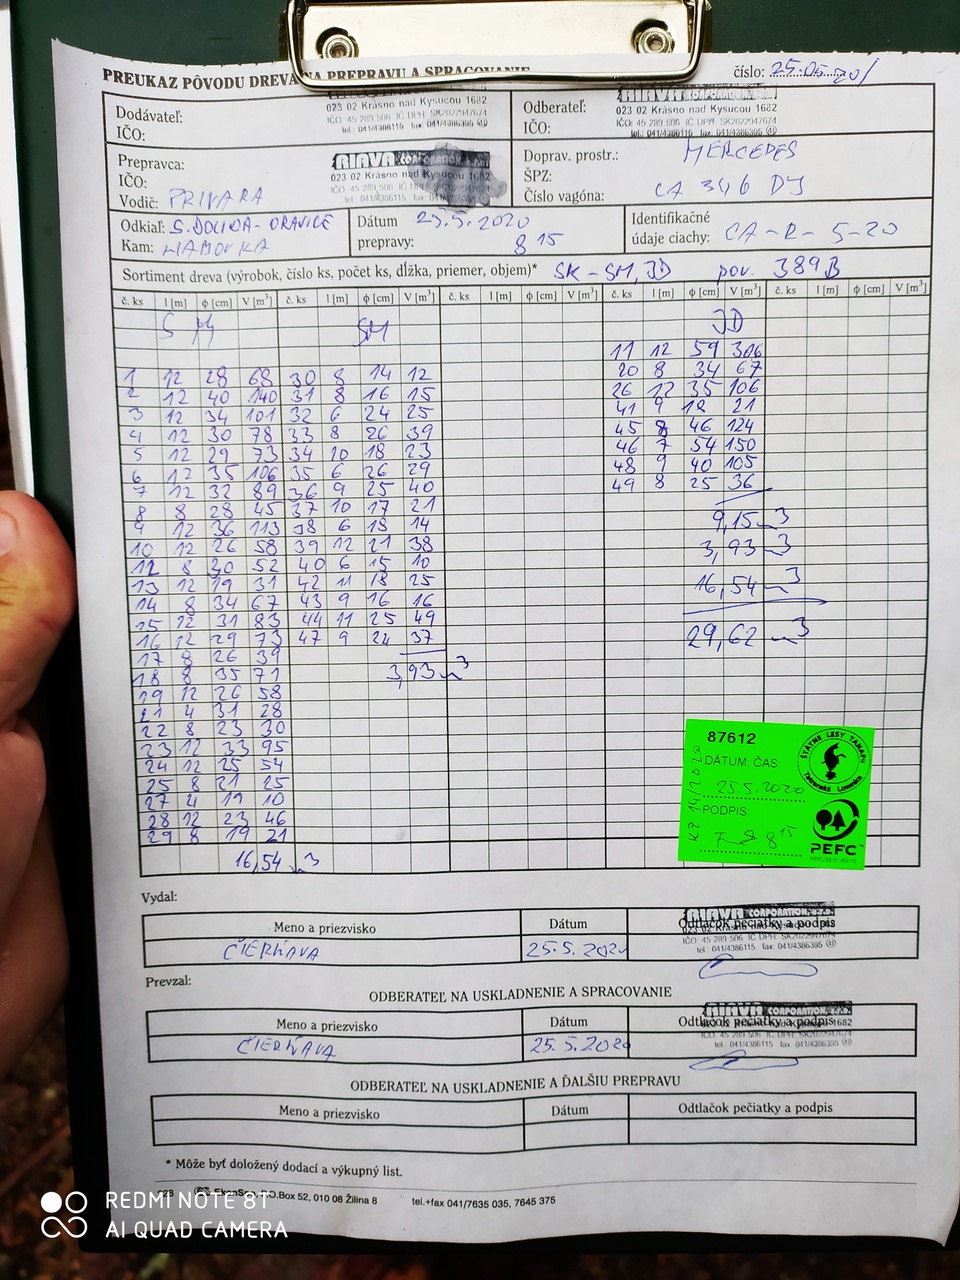 PREUKAZ PÔVODU DREVA NA PREPRAVU A SPRACOVANIE
číslo: 25.05.20/
Dodávateľ:
IČO:
023 02 Krásno nad Kysucou 1682
IČO 45 289 506 IČ DPH: SK2022947674
tel.: 041/4386115 fax: 041/4386395
Odberateľ:
IČO:
RIAVA CORPORATION
023 02 Krásno nad Kysucou 1682
IČO: 45 289 506 IČ DPH: SK2022947674
tel.: 041/4386115 fax: 041/4386395
Prepravca:
IČO:
Vodič: PRIVARA
RIAVA CORPORATION
023 02 Krásno nad Kysucou 1682
IČO: 45 289 506 IČ DPH: SK2022947674
tel.: 041/4386115 fax: 041/4386395
Doprav. prostr.: MERCEDES
ŠPZ:
Číslo vagóna: CA 346 DJ
Odkiaľ: S. DOLINA - ORAVICE
Kam: HABOVKA
Dátum 25.5.2020
prepravy: 8 15
Identifikačné
údaje ciachy: CA-R-5-20
Sortiment dreva (výrobok, číslo ks, počet ks, dĺžka, priemer, objem)* SK-SM, JD pov. 389B
č. ks l [m] ϕ [cm] V [m³] č. ks l [m] ϕ [cm] V [m³] č. ks l [m] ϕ [cm] V [m³] č. ks l [m] ϕ [cm] V [m³] č. ks l [m] ϕ [cm] V [m³]
SM SM JD
11 12 59 306
20 8 34 67
1 12 28 68 30 8 14 12 26 12 35 106
2 12 40 140 31 8 16 15 41 9 18 21
3 12 34 101 32 6 24 25 45 8 46 124
4 12 30 78 33 8 26 39 46 7 54 150
5 12 29 73 34 10 18 23 48 9 40 105
6 12 35 106 35 6 26 29 49 8 25 36
7 12 32 89 36 9 25 40
8 8 28 45 37 10 17 21 9,15 m3
9 12 36 113 38 6 18 14
10 12 26 58 39 12 21 38 3,93 m3
12 8 30 52 40 6 15 10
13 12 19 31 42 11 18 25 16,54 m3
14 8 34 67 43 9 16 16
15 12 31 83 44 11 25 49
16 12 29 73 47 9 24 37 29,62 m3
17 8 26 39
18 8 35 71 3,93 m3
19 12 26 58
21 4 31 28
22 8 23 30
23 12 33 95
24 12 25 54
25 8 21 25
27 4 19 10
28 12 23 46
29 8 19 21
16,54 m3
87612
DÁTUM: ČAS:
25.5.2020
PODPIS
8 15
ŠTÁTNE LESY TANAPU
Tatranská Lomnica
PEFC
Vydal:
Meno a priezvisko Dátum Odtlačok pečiatky a podpis
ČIERŇAVA 25.5.2020
RIAVA CORPORATION s.r.o.
023 02 Krásno nad Kysucou 1682
IČO: 45 289 506 IČ DPH: SK2022947674
tel.: 041/4386115 fax: 041/4386395
Prevzal:
ODBERATEĽ NA USKLADNENIE A SPRACOVANIE
Meno a priezvisko Dátum Odtlačok pečiatky a podpis
ČIERŇAVA 25.5.2020
RIAVA CORPORATION s.r.o.
023 02 Krásno nad Kysucou 1682
IČO: 45 289 506 IČ DPH: SK2022947674
tel.: 041/4386115 fax: 041/4386395
ODBERATEĽ NA USKLADNENIE A ĎALŠIU PREPRAVU
Meno a priezvisko Dátum Odtlačok pečiatky a podpis
* Môže byť doložený dodací a výkupný list.
P.O.Box 52, 010 08 Žilina 8 tel.+fax 041/7635 035, 7645 375
REDMI NOTE 8T
AI QUAD CAMERA